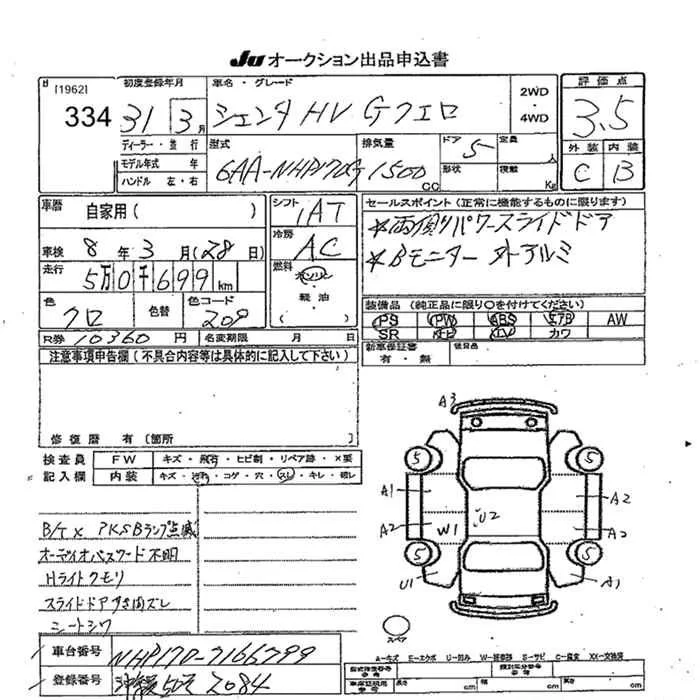 JU オークション出品申込書
[1962]
334
初度登録年月
31 3月
車名・グレード
シエンタ HV Gクエロ
2WD
・
4WD
評価点
3.5
外装 内装
C B
ディーラー・並行
モデル年式 年
ハンドル 左・右
型式
6AA-NHP170G
排気量
1500 CC
ドア
5
形状
定員
人
積載
Kg
車歴
自家用( )
シフト
IAT
車検 8年 3月(28日)
冷房
AC
走行 5万0千699km
燃料
ガソリン
・
軽油
( )
色
クロ
色替
色コード
209
R券 10360円
名変期限 月 日
セールスポイント(正常に機能するものに限ります)
*両側パワースライドドア
*Bモニター 外アルミ
装備品(純正品に限り○を付けてください)
PS PW ABS エアB AW
SR ナビ TV カワ
新車保証書
有・無
後日品
注意事項申告欄(不具合内容等は具体的に記入して下さい)
修復歴 有(箇所
検査員
記入欄
FW
キズ・飛石・ヒビ割・リペア跡・×要
内装
キズ・汚れ・コゲ・穴・スレ・キレ・破レ
B/T× PKSBランプ点滅
オーディオパスワード不明
Hライトクモリ
スライドドアすき間ズレ
シートシワ
A3
5 5
A1 A2
A2 W1 U2 A2
5 5
U1 A1
スペア
A-キズ E-エクボ U-凹み W-補修跡 S-サビ C-腐食 XX-交換済
車台番号
NHP170-7166799
登録番号
2084
長さ cm 幅 cm 高さ cm